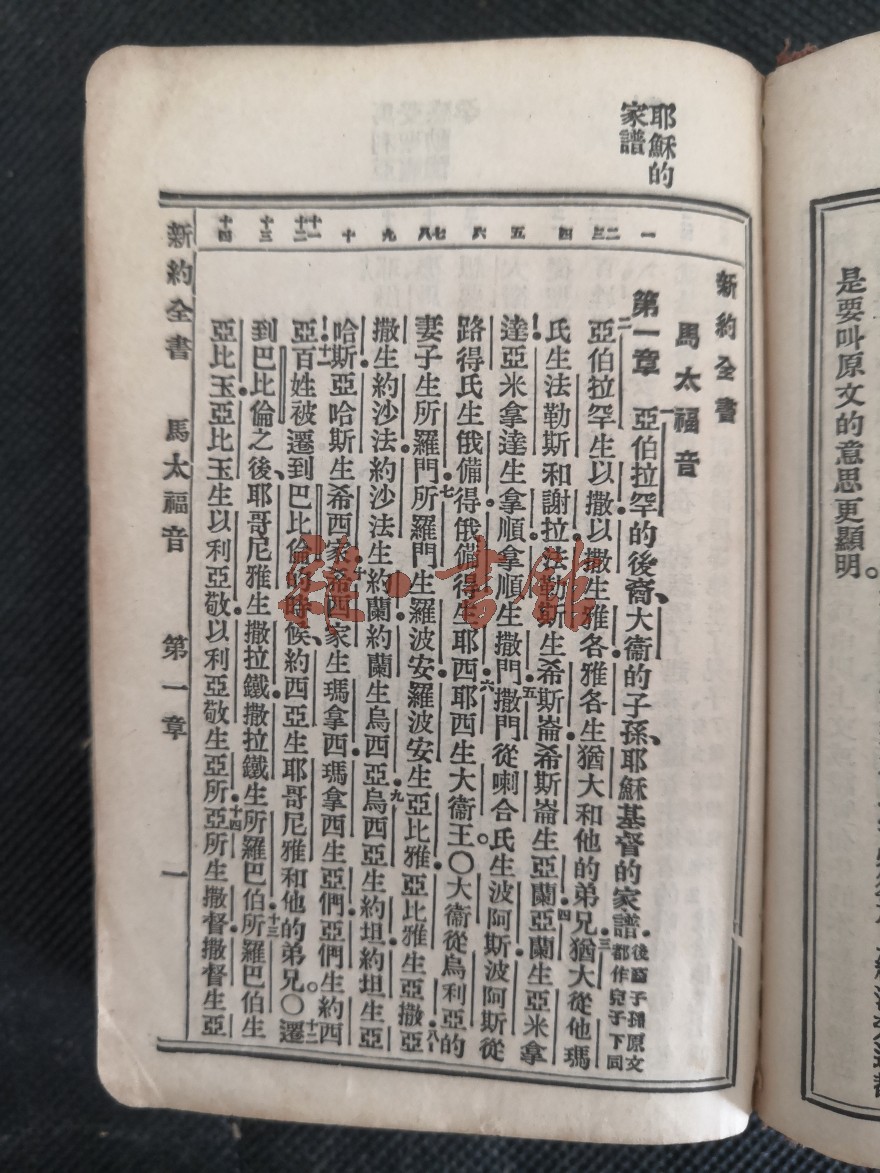 耶穌的
家譜
一 二 三 四 五 六 七 八 九 十 十一 十二 十三 十四
新約全書
馬太福音
第一章 一亞伯拉罕的後裔、大衞的子孫、耶穌基督的家譜。後裔子孫原文都作兒子下同
二亞伯拉罕生以撒。以撒生雅各。雅各生猶大和他的弟兄。三猶大從他瑪
氏生法勒斯和謝拉。法勒斯生希斯崙。希斯崙生亞蘭。四亞蘭生亞米拿
達。亞米拿達生拿順。拿順生撒門。五撒門從喇合氏生波阿斯。波阿斯從
路得氏生俄備得。俄備得生耶西。六耶西生大衞王。〇大衞從烏利亞的
妻子生所羅門。七所羅門生羅波安。羅波安生亞比雅。亞比雅生亞撒。八亞
撒生約沙法。約沙法生約蘭。約蘭生烏西亞。九烏西亞生約坦。約坦生亞
哈斯。亞哈斯生希西家。十希西家生瑪拿西。瑪拿西生亞們。亞們生約西
亞。十一百姓被遷到巴比倫的時候、約西亞生耶哥尼雅和他的弟兄。〇十二遷
到巴比倫之後、耶哥尼雅生撒拉鐵。撒拉鐵生所羅巴伯。十三所羅巴伯生
亞比玉。亞比玉生以利亞敬。以利亞敬生亞所。十四亞所生撒督。撒督生亞
新約全書 馬太福音 第一章 一
是要叫原文的意思更顯明。
雜·書館